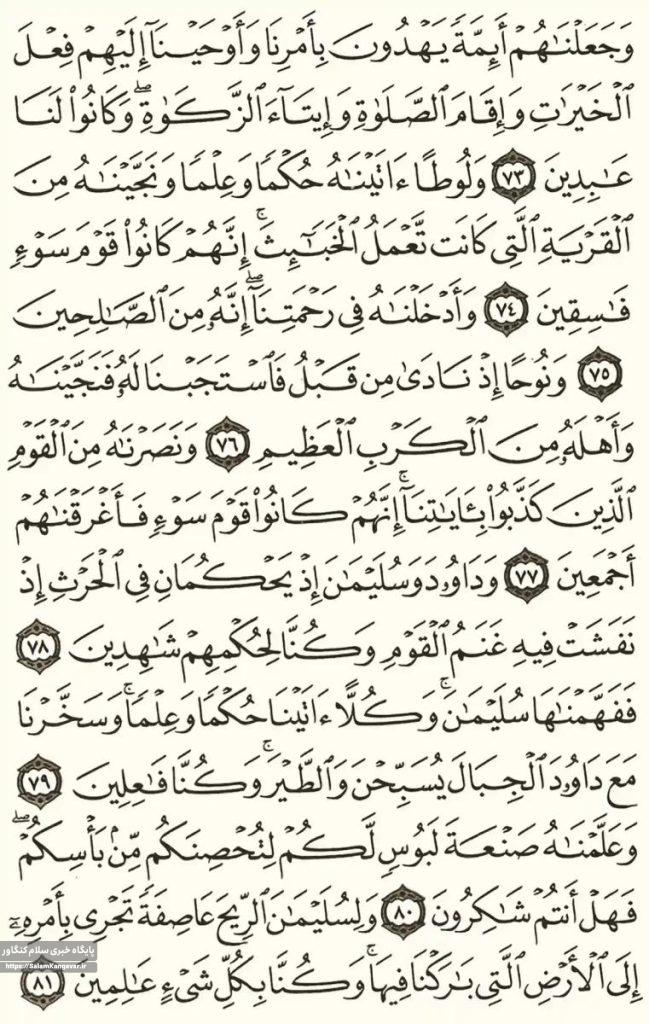 وَجَعَلْنَٰهُمْ أَئِمَّةً يَهْدُونَ بِأَمْرِنَا وَأَوْحَيْنَآ إِلَيْهِمْ فِعْلَ
ٱلْخَيْرَٰتِ وَإِقَامَ ٱلصَّلَوٰةِ وَإِيتَآءَ ٱلزَّكَوٰةِۖ وَكَانُوا۟ لَنَا
عَٰبِدِينَ ٧٣ وَلُوطًا ءَاتَيْنَٰهُ حُكْمًا وَعِلْمًا وَنَجَّيْنَٰهُ مِنَ
ٱلْقَرْيَةِ ٱلَّتِى كَانَت تَّعْمَلُ ٱلْخَبَٰٓئِثَۚ إِنَّهُمْ كَانُوا۟ قَوْمَ سَوْءٍ
فَٰسِقِينَ ٧٤ وَأَدْخَلْنَٰهُ فِى رَحْمَتِنَآۖ إِنَّهُۥ مِنَ ٱلصَّٰلِحِينَ
٧٥ وَنُوحًا إِذْ نَادَىٰ مِن قَبْلُ فَٱسْتَجَبْنَا لَهُۥ فَنَجَّيْنَٰهُ
وَأَهْلَهُۥ مِنَ ٱلْكَرْبِ ٱلْعَظِيمِ ٧٦ وَنَصَرْنَٰهُ مِنَ ٱلْقَوْمِ
ٱلَّذِينَ كَذَّبُوا۟ بِـَٔايَٰتِنَآۚ إِنَّهُمْ كَانُوا۟ قَوْمَ سَوْءٍ فَأَغْرَقْنَٰهُمْ
أَجْمَعِينَ ٧٧ وَدَاوُۥدَ وَسُلَيْمَٰنَ إِذْ يَحْكُمَانِ فِى ٱلْحَرْثِ إِذْ
نَفَشَتْ فِيهِ غَنَمُ ٱلْقَوْمِ وَكُنَّا لِحُكْمِهِمْ شَٰهِدِينَ ٧٨
فَفَهَّمْنَٰهَا سُلَيْمَٰنَۚ وَكُلًّا ءَاتَيْنَا حُكْمًا وَعِلْمًاۚ وَسَخَّرْنَا
مَعَ دَاوُۥدَ ٱلْجِبَالَ يُسَبِّحْنَ وَٱلطَّيْرَۚ وَكُنَّا فَٰعِلِينَ ٧٩
وَعَلَّمْنَٰهُ صَنْعَةَ لَبُوسٍ لَّكُمْ لِتُحْصِنَكُم مِّنۢ بَأْسِكُمْۖ
فَهَلْ أَنتُمْ شَٰكِرُونَ ٨٠ وَلِسُلَيْمَٰنَ ٱلرِّيحَ عَاصِفَةً تَجْرِى بِأَمْرِهِۦٓ
إِلَى ٱلْأَرْضِ ٱلَّتِى بَٰرَكْنَا فِيهَاۚ وَكُنَّا بِكُلِّ شَىْءٍ عَٰلِمِينَ ٨١
پایگاه خبری سلام کنگاور
https://SalamKangavar.ir